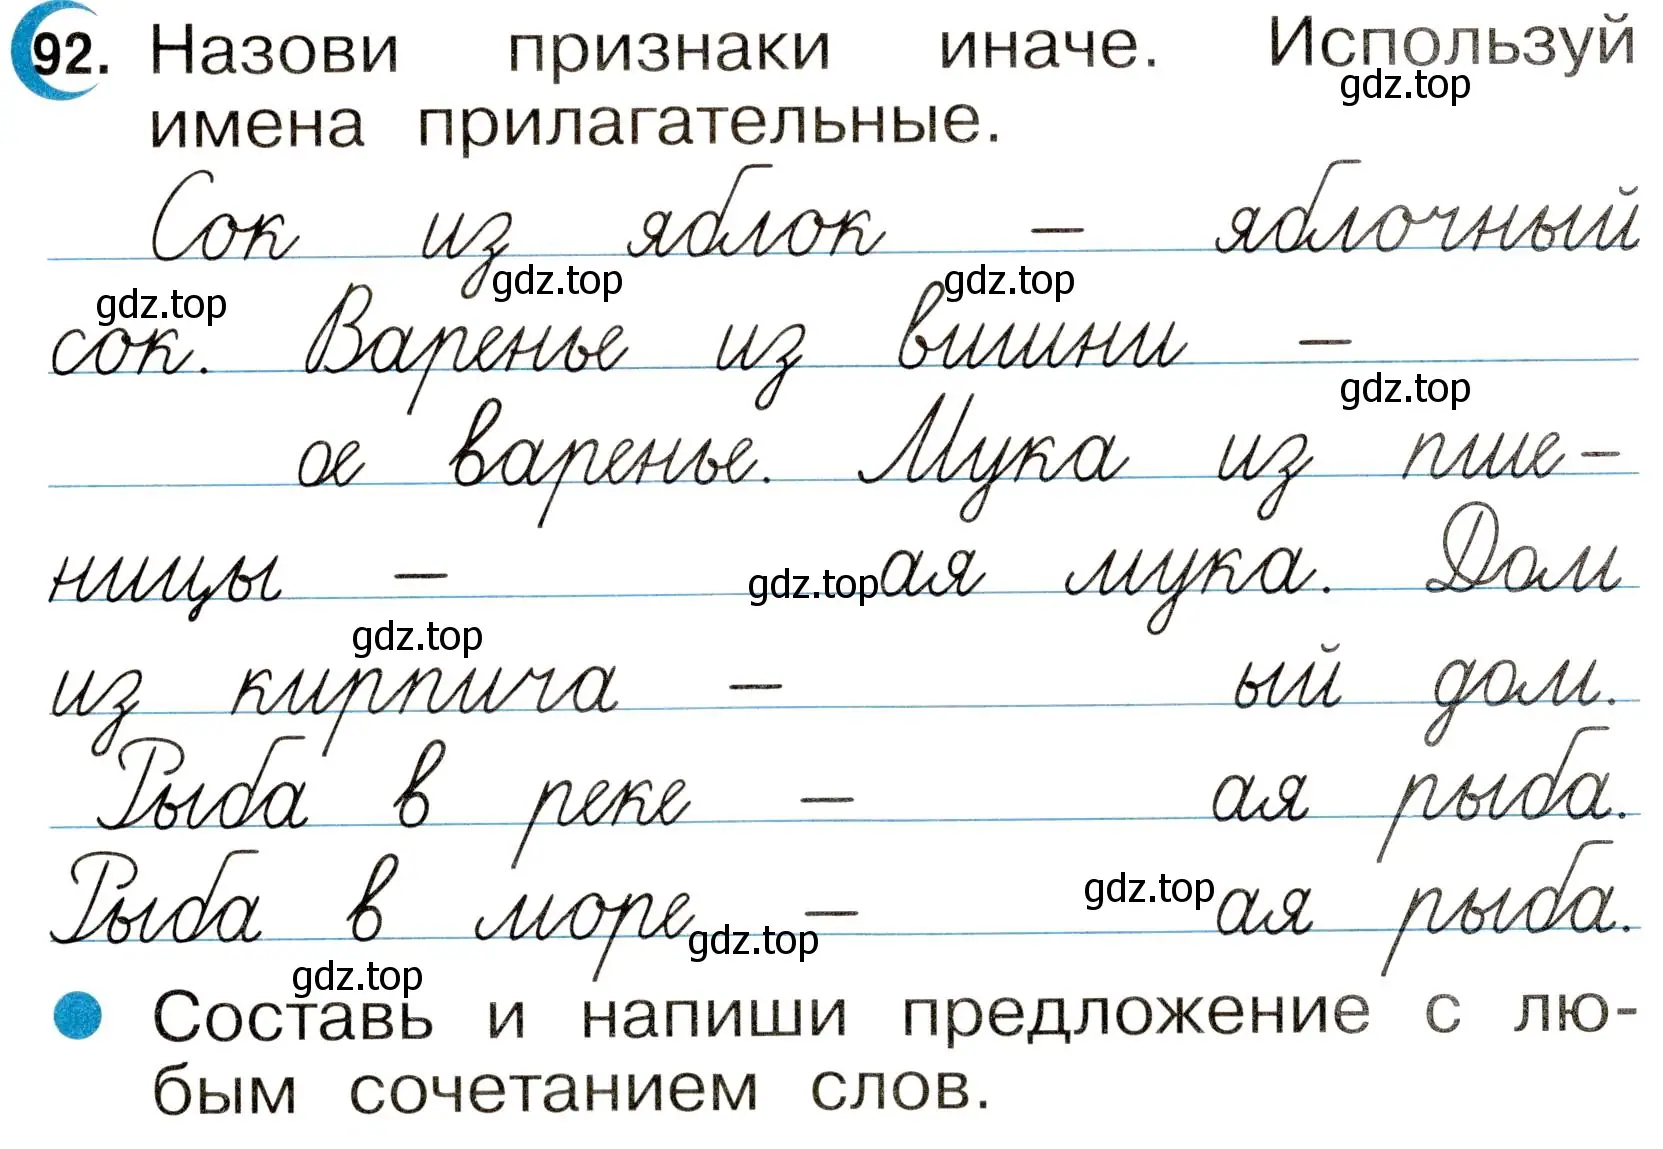 92. Назови признаки иначе. Используй
gdz.top
имена прилагательные.
Сок из яблок – яблочный
gdz.top gdz.top gdz.top
сок. Варенье из вишни –
gdz.top
ое варенье. Мука из пше-
ницы – gdz.top ая мука. Дом
gdz.top
из кирпича – ый дом.
Рыба в реке – ая рыба.
gdz.top
Рыба в море – ая рыба.
gdz.top
gdz.top
Составь и напиши предложение с лю-
бым сочетанием слов.